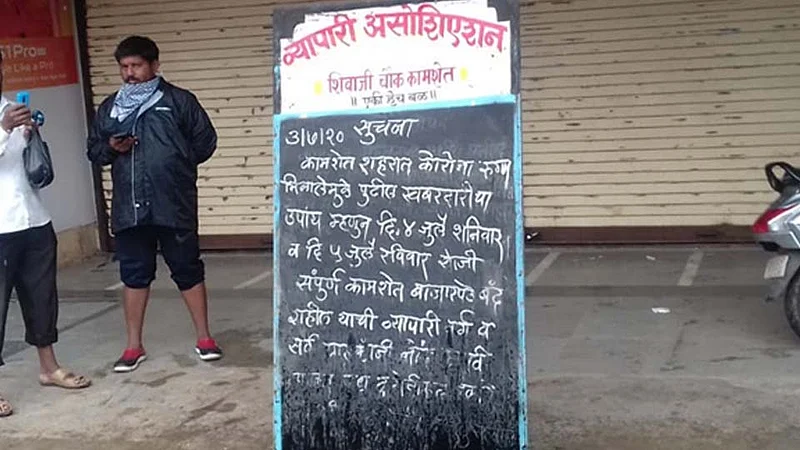 51Pro
Like a Pro
व्यापारी असोशिएशन
शिवाजी चौक कामशेत
॥ एकी हेच बळ ॥
३/७/२० सुचना
कामशेत शहरात कोरोना रुग्ण
मिळालेमुळे पुढील खबरदारीचा
उपाय म्हणुन दि. ४ जुलै शनिवार
व दि ५ जुलै रविवार रोजी
संपुर्ण कामशेत बाजारपेठ बंद
राहील याची व्यापारी वर्ग व
सर्व